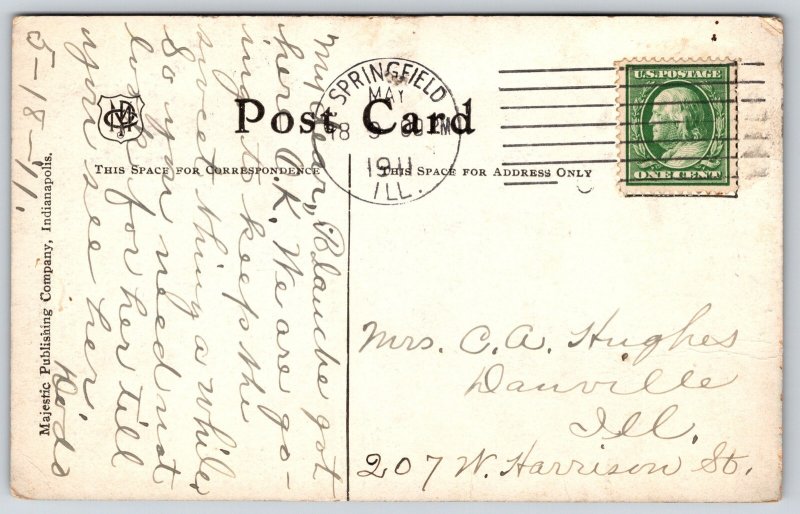 Post Card
THIS SPACE FOR CORRESPONDENCE
THIS SPACE FOR ADDRESS ONLY
SPRINGFIELD
MAY
18
1911
ILL.
U.S. POSTAGE
ONE CENT
Majestic Publishing Company, Indianapolis.
5-18-11.
My dear, Blanche got
here O.K. We are go-
ing to keep the
sweet thing awhile,
So you need not
look for her till
you see her.
Dode
Mrs. C. A. Hughes
Danville
Ill.
207 W. Harrison St.